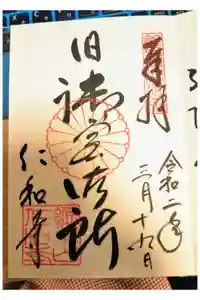 奉拝
令和二年
三月十九日
旧御室御所
仁和寺